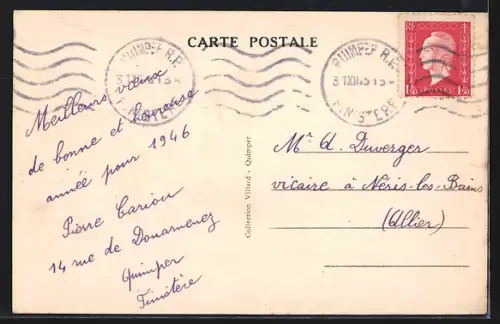 CARTE POSTALE
QUIMPER R.P.
FINISTERE
QUIMPER R.P.
FINISTERE
RF
POSTES
Meilleurs vœux
de bonne et heureuse
année pour 1946
Pierre Cariou
14 rue de Douarnenez
Quimper
Finistère
Collection Villard - Quimper
Mr d. Duverger
vicaire à Néris-les-Bains
(Allier)